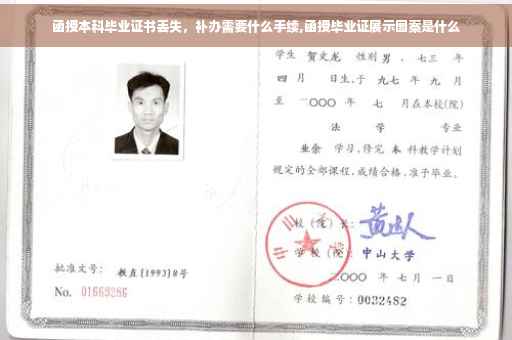 函授本科毕业证书丢失，补办需要什么手续,函授毕业证展示图案是什么
学生 贺文龙 性别 男 、七三 年
四 月 日生,于 九七 年 九 月
至 二〇〇〇 年 七 月在本校(院)
法 学 专业
业余 学习,修完 本 科教学计划
规定的全部课程,成绩合格,准予毕业。
校(院)长:
学校(院): 中山大学
二〇〇〇 年 七 月 一 日
批准文号: 教直[1993]8号
No. 01669286
学校编号: 0032482